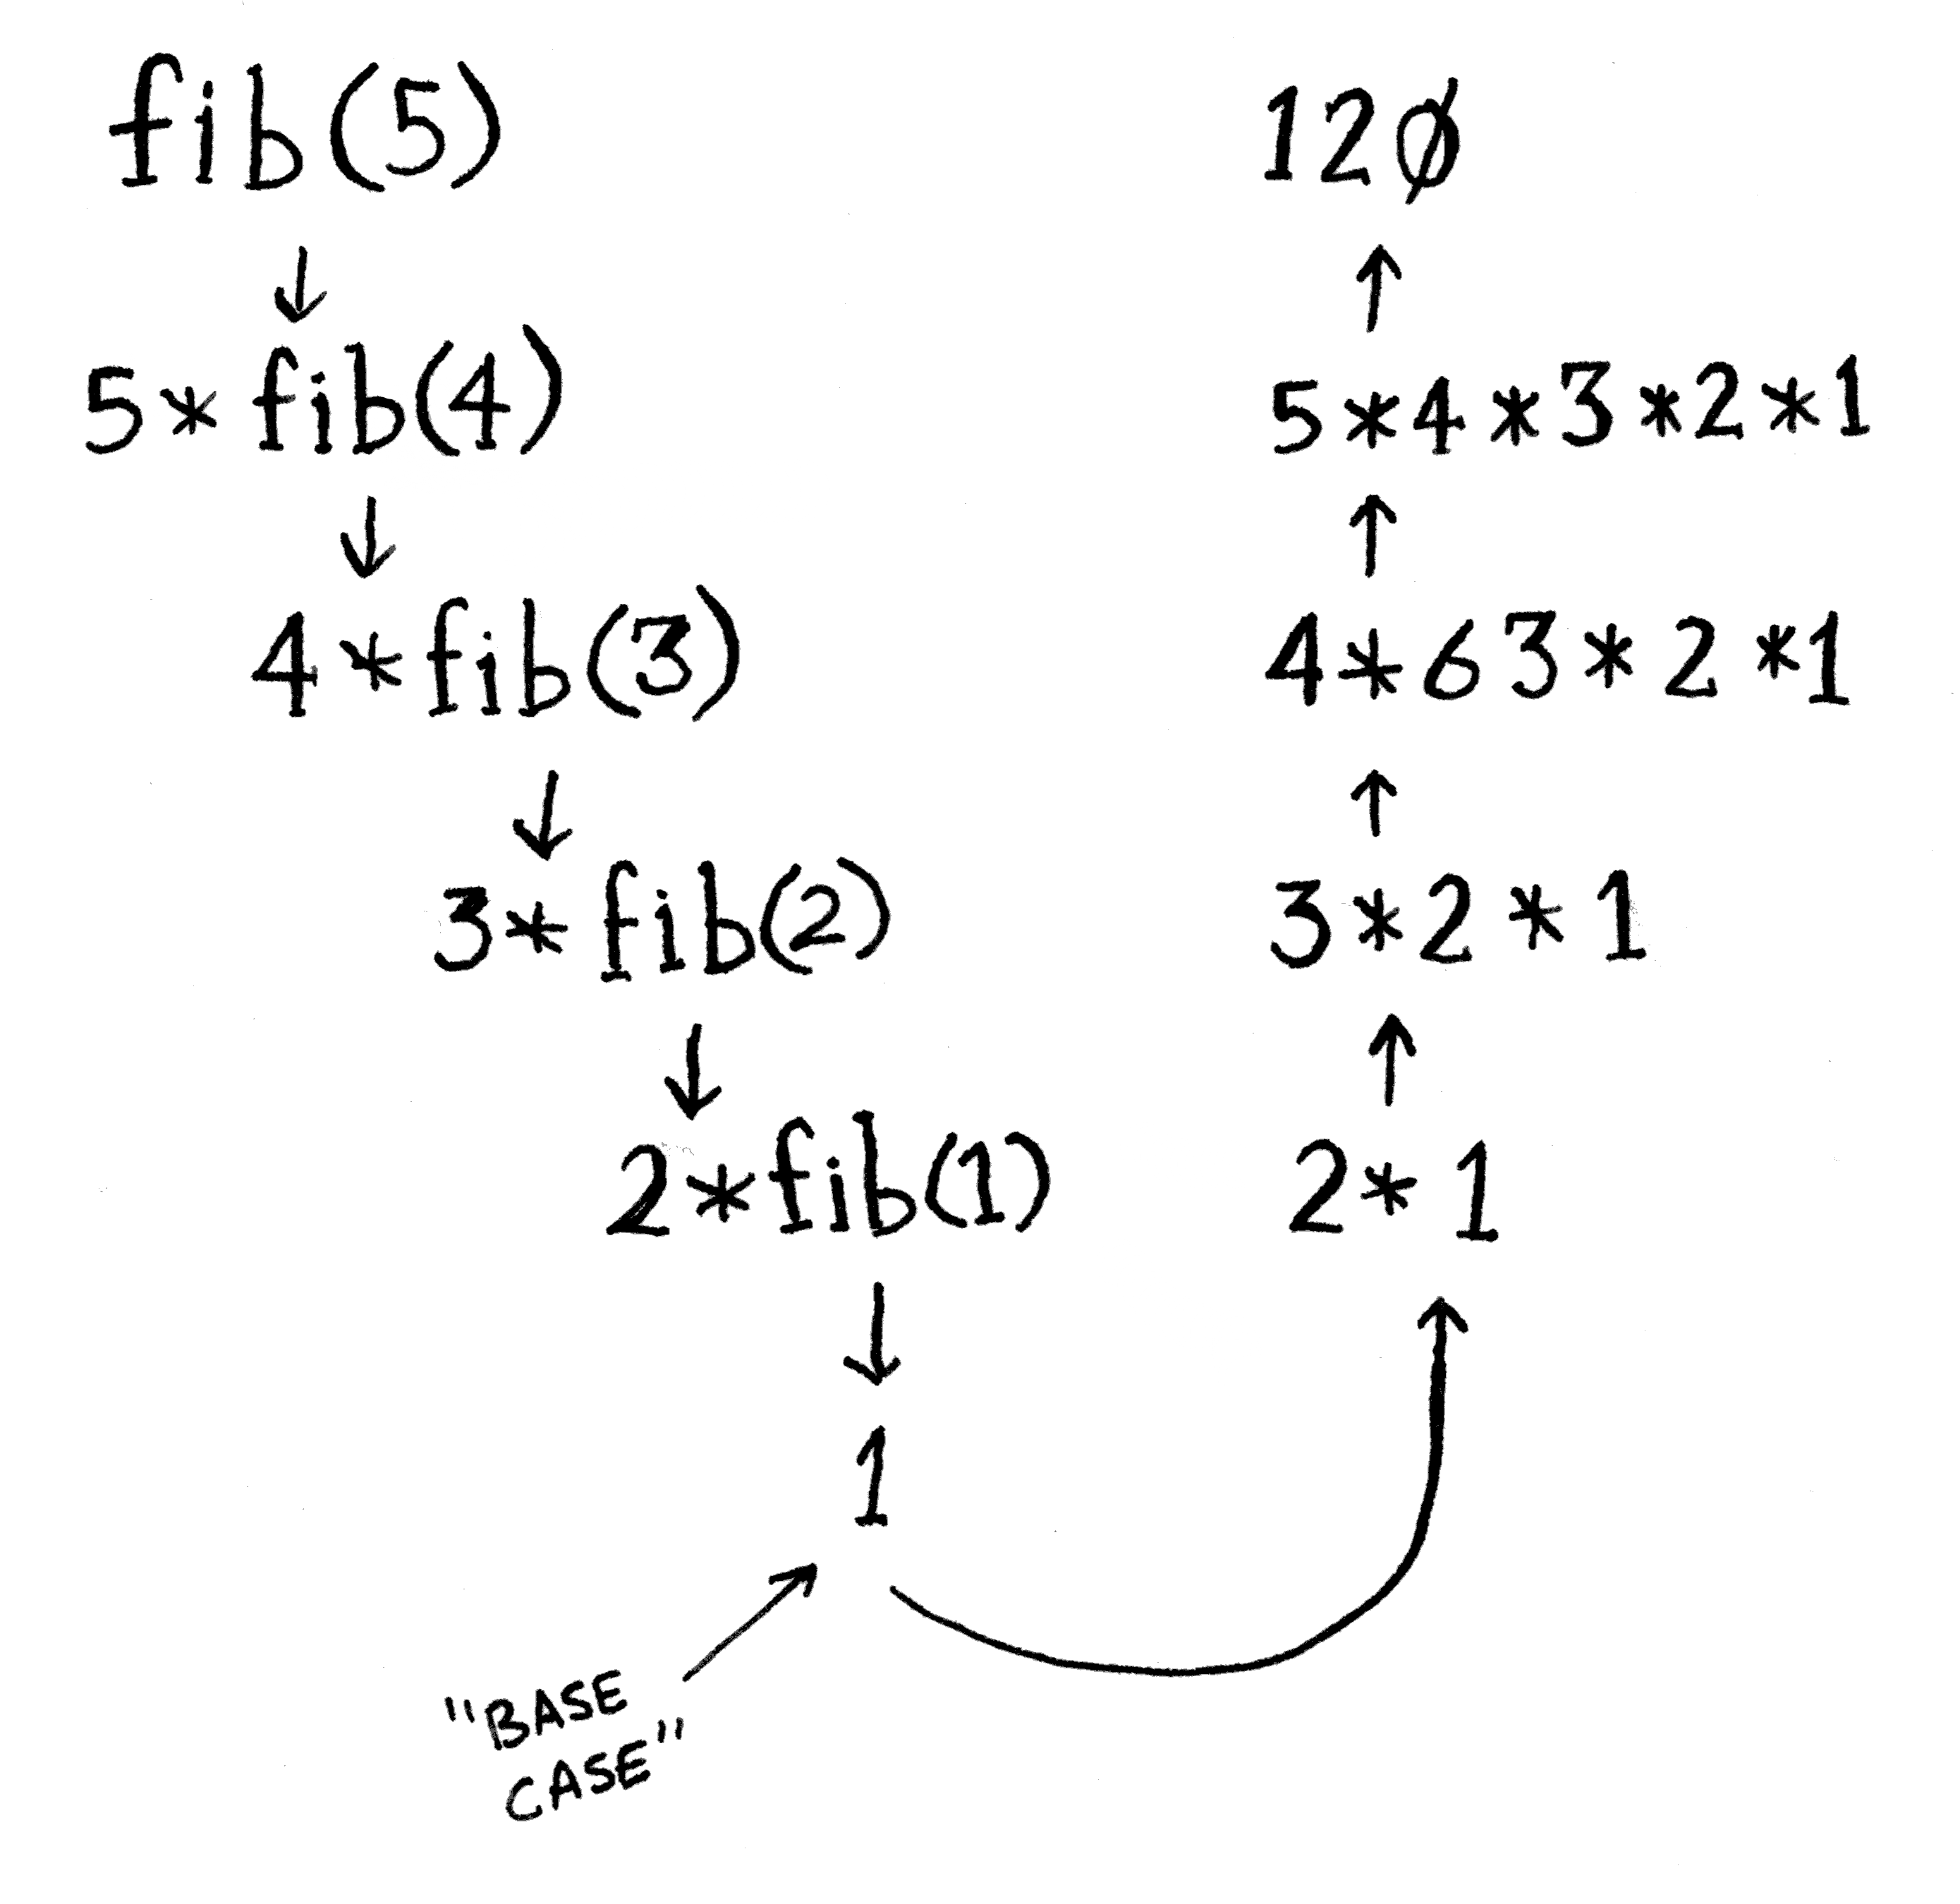 fib(5)
5*fib(4)
4*fib(3)
3*fib(2)
2*fib(1)
1
"BASE
CASE"
2*1
3*2*1
4*63*2*1
5*4*3*2*1
120